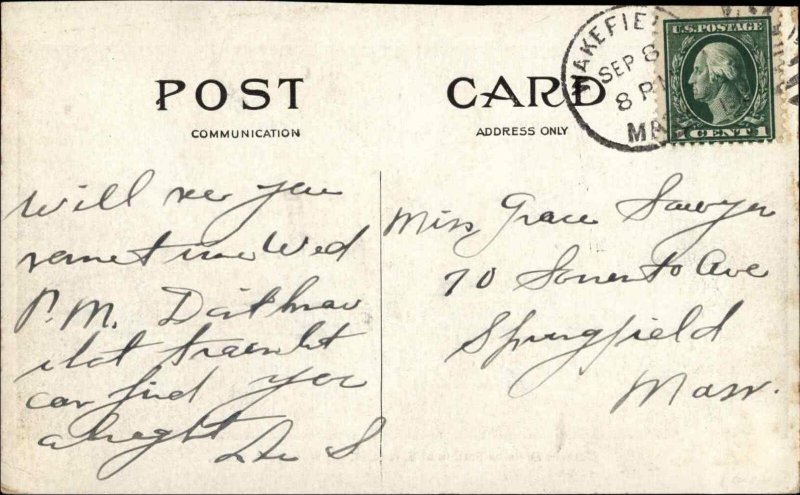 POST CARD
COMMUNICATION
ADDRESS ONLY
WAKEFIEL
SEP 8
8 P
MA
U.S. POSTAGE
CENTS 1
Will see you
sometime Wed
P.M. Dont
what train but
can find you
alright
S
Miss Grace Sawyer
70 Sorrento Ave
Springfield
Mass.